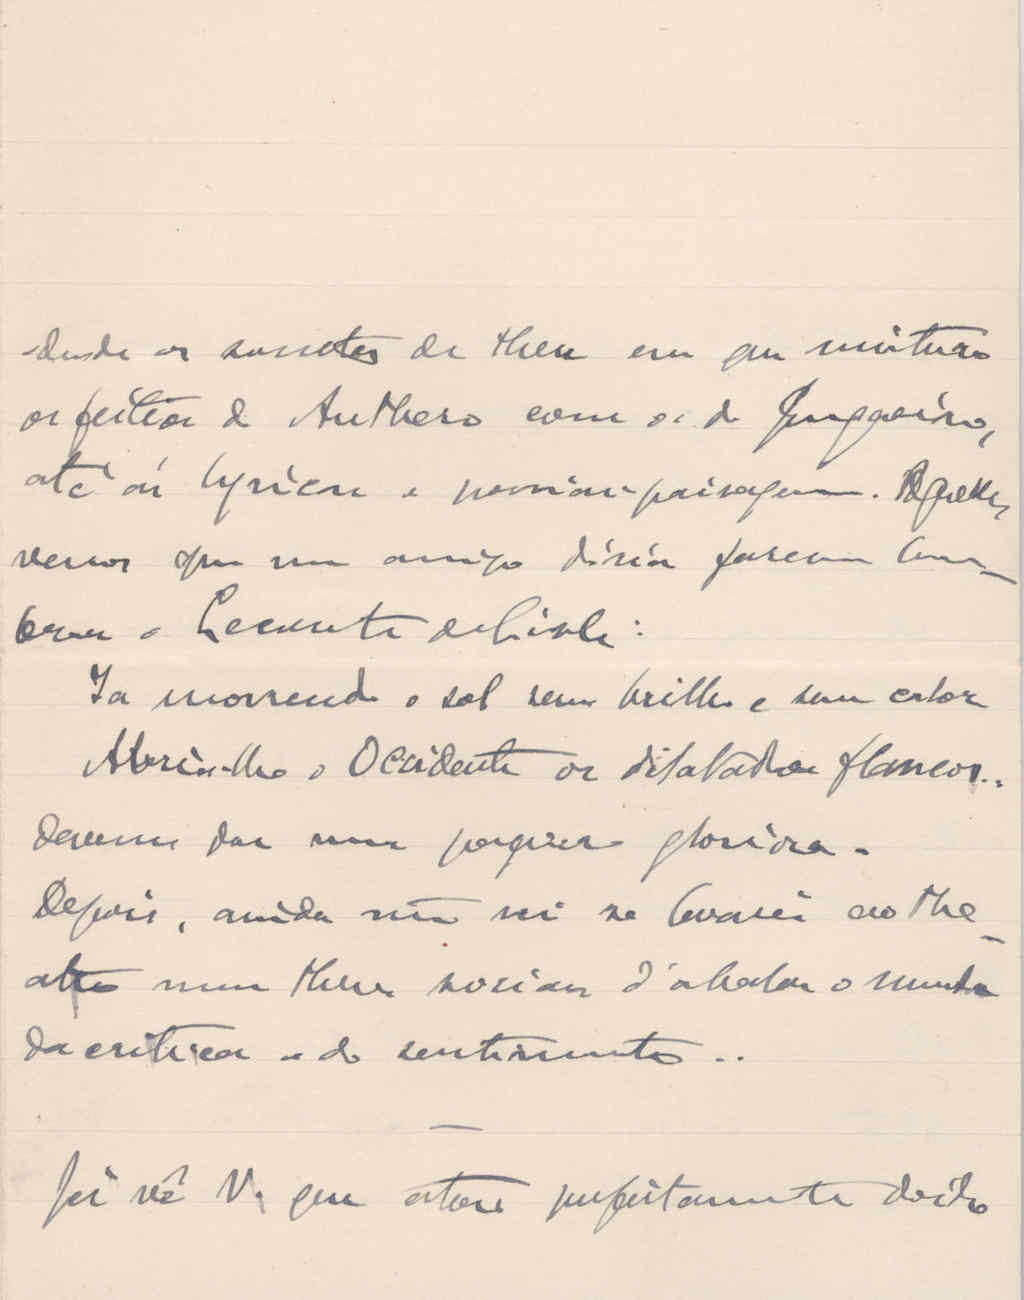 desde os sonetos de these em que misturo
os feitios de Anthero com os de Junqueiro,
até ás lyricas e poesias-paisagem. Aquelles
versos que um amigo diria fazerem lem-
brar o Leconte de Lisle:
Ia morrendo o sol sem brilho e sem calor
Abria-lhe o Occidente os dilatados flancos..
devem dar uma gloriosa.
Depois, ainda não sei se levarei ao the-
atro uma these social d'abalar o mundo
da critica e do sentimento ..
Já vê V. que estou perfeitamente doido